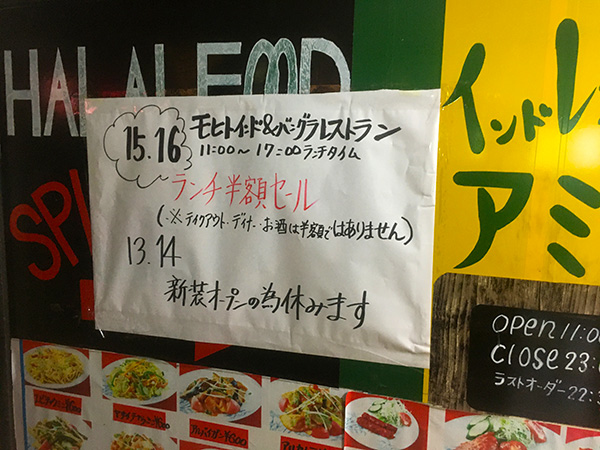 HALAL FOOD
15.16
モヒトインド&バングラレストラン
11:00〜17:00ランチタイム
ランチ半額セール
(※テイクアウト・ディナー・お酒は半額ではありません)
13.14
新装オープンの為休みます
インドレ
アミ
OPEN 11:00
CLOSE 23:
ラストオーダー22:3